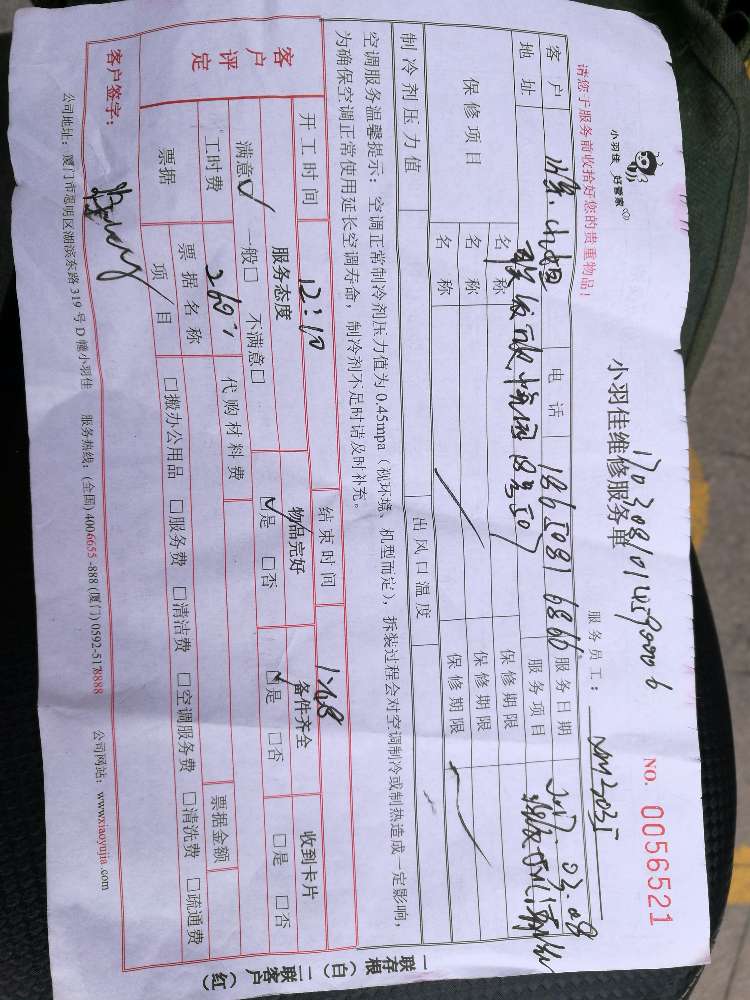 小羽佳 好管家
小羽佳维修服务单
NO. 0056521
请您于服务前收拾好您的贵重物品!
服务员工: XM2035
客户 小姐 电话 服务日期 2017.03.08
地址 服务项目
保修项目 名称 保修期限
名称 保修期限
名称 保修期限
制冷剂压力值 出风口温度
空调服务温馨提示:空调正常制冷剂压力值为 0.45mpa(视环境、机型而定),拆装过程会对空调制冷或制热造成一定影响,
为确保空调正常使用延长空调寿命,制冷剂不足时请及时补充。
开工时间 12:10 结束时间
客户评定 服务态度 物品完好 备件齐全 收到卡片
满意☑ 一般□ 不满意□ ☑是 □否 ☑是 □否 □是 □否
工时费 260 代购材料费 票据金额
票据 票据名称/项目 □搬办公用品 □服务费 □清洁费 □空调服务费 □清洗费 □疏通费
客户签字:
公司地址:厦门市思明区湖滨东路 319 号 D 幢小羽佳 服务热线:(全国) 4006655-888 (厦门) 0592-5178888 公司网站:www.xiaoyujia.com
一联存根(白)二联客户(红)